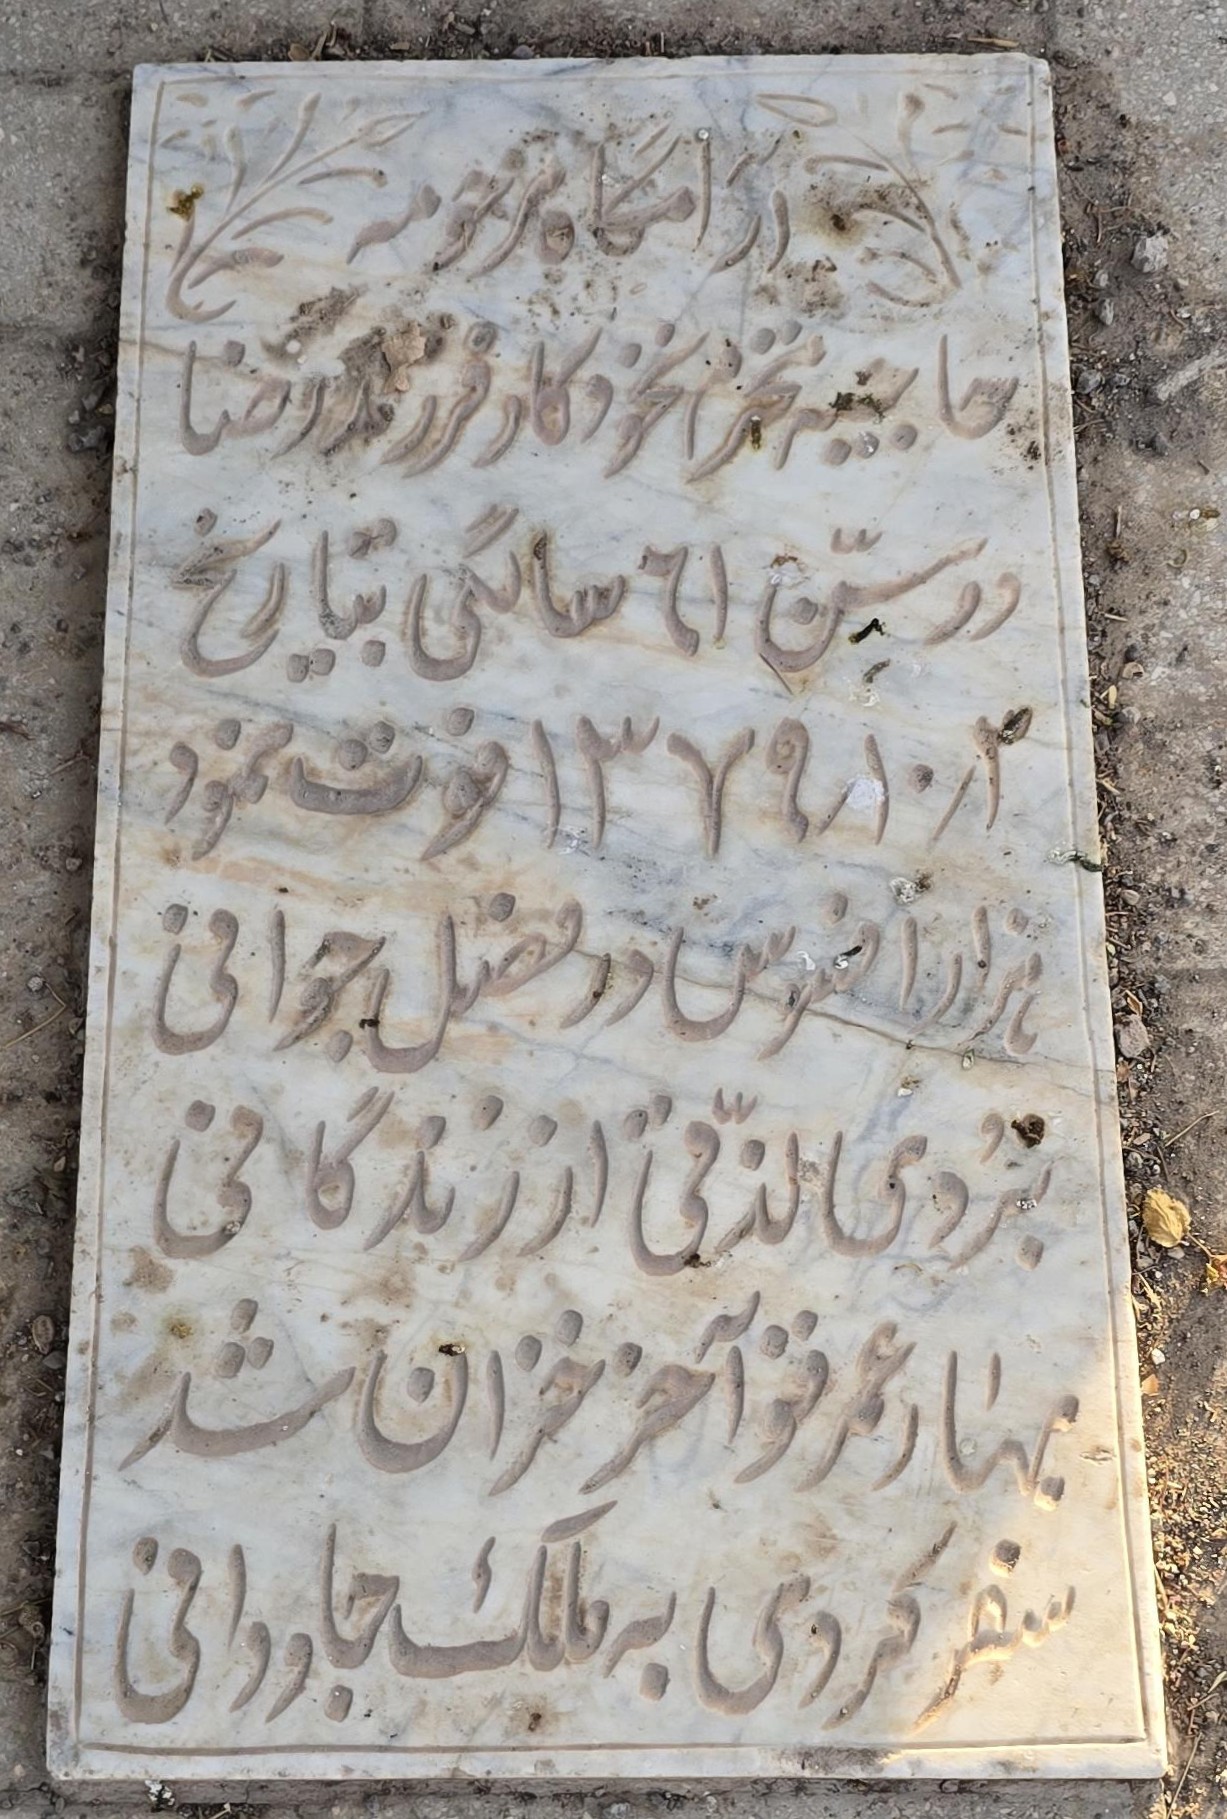 آرامگاه مرحومه
حاجیه نخودکار فرزند رضا
در سنّ ٦١ سالگی بتاریخ
١٣٧٩/١٠/٣ فوت نمود
هزار افسوس در فصل جوانی
نبُردی لذّتی از زندگانی
بهار عمر تو آخر خزان شد
سفر کردی به ملکء جاودانی